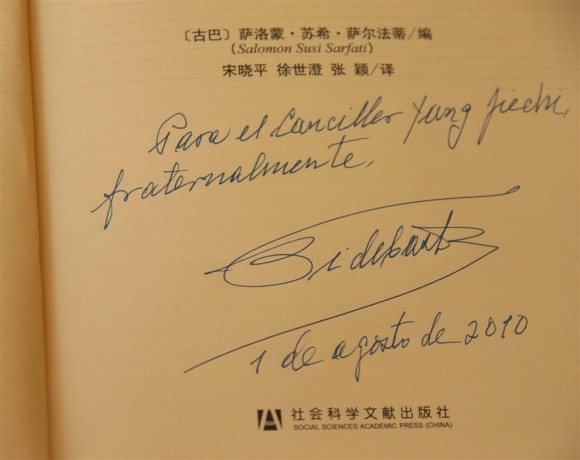 〔古巴〕萨洛蒙·苏希·萨尔法蒂/编
(Salomon Susi Sarfati)
宋晓平 徐世澄 张 颖/译
Para el Canciller Yang Jiechi,
fraternalmente.
Fidel Castro
1 de agosto de 2010
社会科学文献出版社
SOCIAL SCIENCES ACADEMIC PRESS (CHINA)